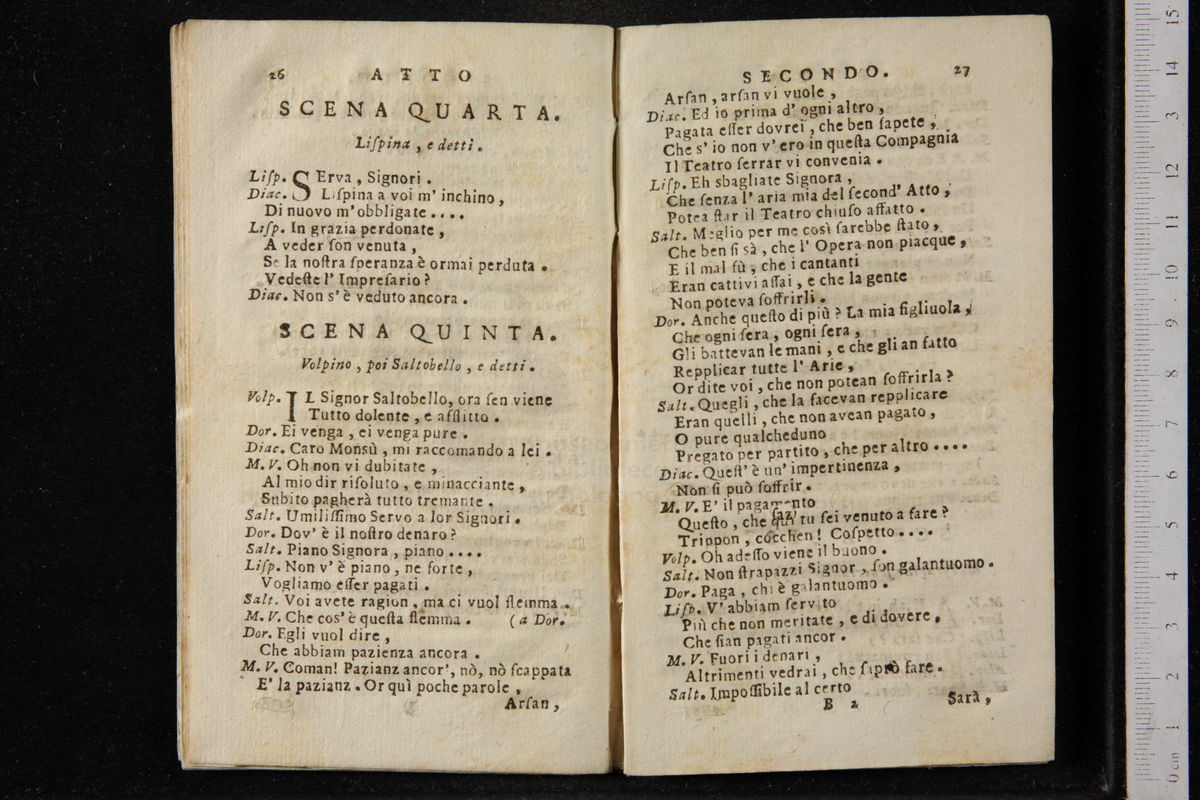 26 ATTO
SCENA QUARTA.
Liſpina, e detti.
Liſp. SErva, Signori.
Diac. Liſpina a voi m' inchino,
Di nuovo m' obbligate....
Liſp. In grazia perdonate,
A veder ſon venuta,
Se la noſtra ſperanza è ormai perduta.
Vedeſte l' Impreſario?
Diac. Non s' è veduto ancora.
SCENA QUINTA.
Volpino, poi Saltobello, e detti.
Volp. IL Signor Saltobello, ora ſen viene
Tutto dolente, e afflitto.
Dor. Ei venga, ei venga pure.
Diac. Caro Monsù, mi raccomando a lei.
M. V. Oh non vi dubitate,
Al mio dir riſoluto, e minacciante,
Subito pagherà tutto tremante.
Salt. Umiliſſimo Servo a lor Signori.
Dor. Dov' è il noſtro denaro?
Salt. Piano Signora, piano....
Liſp. Non v' è piano, ne forte,
Vogliamo eſſer pagati.
Salt. Voi avete ragion, ma ci vuol flemma.
M. V. Che cos' è queſta flemma. (a Dor.
Dor. Egli vuol dire,
Che abbiam pazienza ancora.
M. V. Coman! Pazianz ancor', nò, nò ſcappata
E' la pazianz. Or quì poche parole,
Arſan,
SECONDO. 27
Arſan, arſan vi vuole,
Diac. Ed io prima d' ogni altro,
Pagata eſſer dovrei, che ben ſapete,
Che s' io non v' ero in queſta Compagnia
Il Teatro ſerrar vi convenia.
Liſp. Eh sbagliate Signora,
Che ſenza l' aria mia del ſecond' Atto,
Potea ſtar il Teatro chiuſo affatto.
Salt. Meglio per me così ſarebbe ſtato,
Che ben ſi sà, che l' Opera non piacque,
E il mal fù, che i cantanti
Eran cattivi aſſai, e che la gente
Non poteva ſoffrirli.
Dor. Anche queſto di più? La mia figliuola,
Che ogni ſera, ogni ſera,
Gli battevan le mani, e che gli an fatto
Repplicar tutte l' Arie,
Or dite voi, che non potean ſoffrirla?
Salt. Quegli, che la facevan repplicare
Eran quelli, che non avean pagato,
O pure qualcheduno
Pregato per partito, che per altro....
Diac. Queſt' è un' impertinenza,
Non ſi può ſoffrir.
M. V. E' il pagamento
Queſto, che tu ſei venuto a fare?
Trippon, cocchen! Coſpetto....
Volp. Oh adeſſo viene il buono.
Salt. Non ſtrapazzi Signor, ſon galantuomo.
Dor. Paga, chi è galantuomo.
Liſp. V' abbiam ſervito
Più che non meritate, e di dovere,
Che ſian pagati ancor.
M. V. Fuori i denari,
Altrimenti vedrai, che ſaprò fare.
Salt. Impoſſibile al certo
B 2 Sarà,